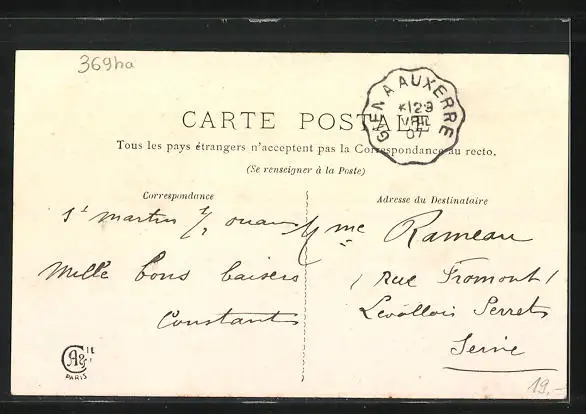 369ha
GIEN A AUXERRE
12 9
AVRIL
07
CARTE POSTALE
Tous les pays étrangers n'acceptent pas la Correspondance au recto.
(Se renseigner à la Poste)
Correspondance
St Martin s/
Mille bons baisers
Constants
Adresse du Destinataire
Mme Rameau
1 Rue Fromont 1
Levallois Perret
Seine
PARIS
19.-